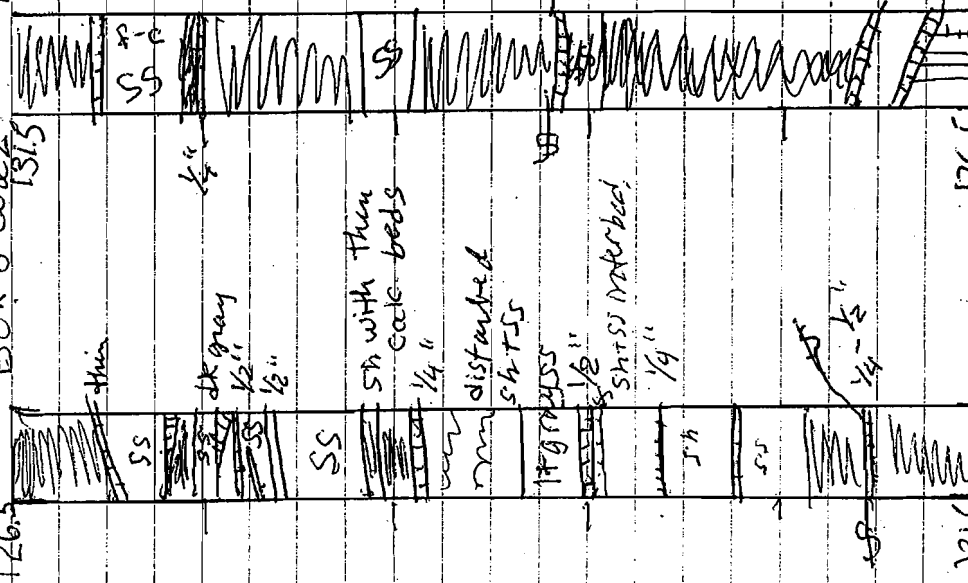 131.5
SS
1/4"
SS
126.5
thin
SS
SS
dk gray
1/2"
SS
1/2"
SS
sh with thin
calc beds
1/4"
disturbed
sh + SS
lt gray SS
1/2"
sh + SS interbed.
1/4"
sh
SS
1/4 - 1/2"